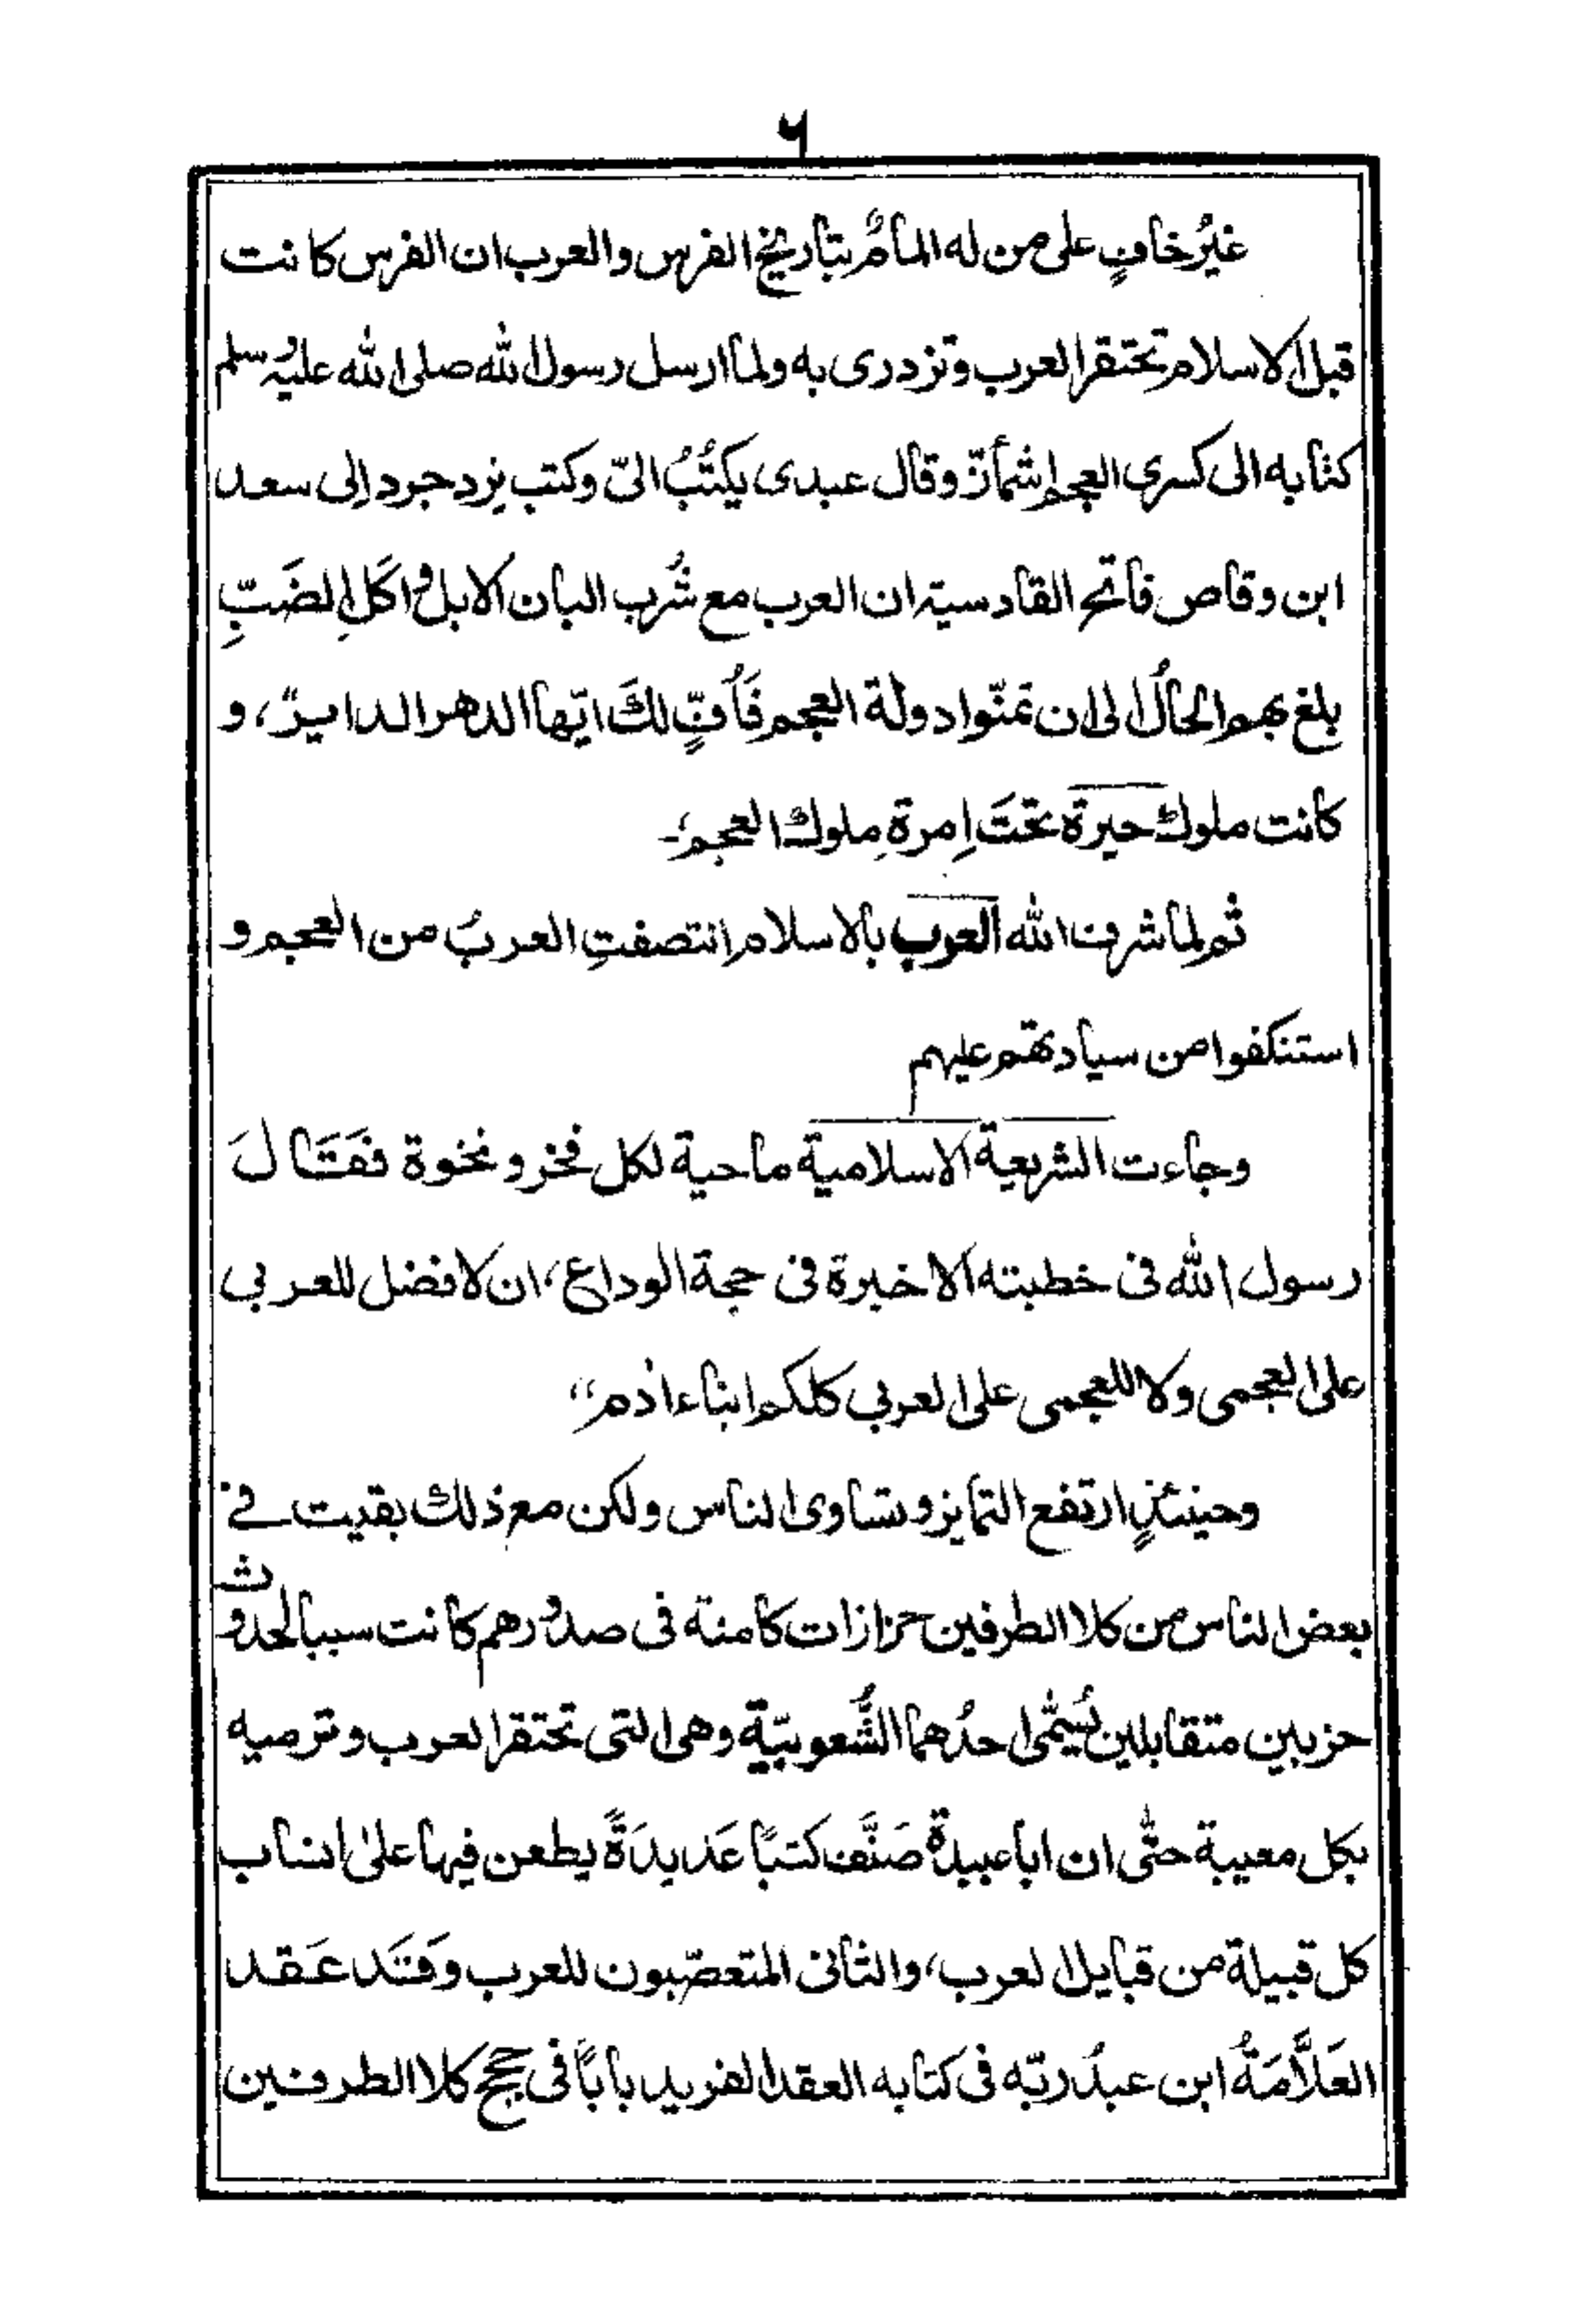 ٦
غيرُ خافٍ على من له المامٌ بتاريخ الفرس والعرب ان الفرس كانت
قبل الاسلام تحتقر العرب وتزدرى به ولما ارسل رسول الله صلى الله عليه وسلم
كتابه الى كسرى العجم اشمأزّ وقال عبدى يكتُبُ الىّ وكتب يزدجرد إلى سعد
ابن وقاص فاتح القادسية ان العرب مع شُرب البان الابل واكلِ الضَبِّ
بلغ بهم الحالُ الى ان تمنّوا دولة العجم فَأُفٍّ لكَ ايّها الدهر الدايرُ“، و
كانت ملوك حيرة تحتَ اِمرةِ ملوك العجم،-
ثم لما شرف الله العرب بالاسلام انتصفتِ العربُ من العجم و
استنكفوا من سيادتهم عليهم
وجاءت الشريعة الاسلامية ماحية لكل فخر ونخوة فَقَالَ
رسول الله فى خطبته الاخيرة فى حجة الوداع، ان لا فضل للعربي
على العجمى ولا للعجمى على العربي كلكم ابناء اٰدم“
وحينئذٍ ارتفع التمايز وتساوى الناس ولكن مع ذلك بقيت فے
بعض الناس من كلا الطرفين حزازات كامنة فى صدورهم كانت سببا لحدوث
حزبين متقابلين يُسمّٰى احدُهما الشُّعوبيّة وهى التى تحتقر العرب وترميه
بكل معيبة حتّٰى ان ابا عبيدة صَنَّف كتبًا عَديدَةً يطعن فيها علىٰ انساب
كل قبيلة من قبايل العرب، والثانى المتعصّبون للعرب وقَد عَقد
العَلَّامَةُ ابن عبدُ ربّه فى كتابه العقد الفريد باباً فى حجج كلا الطرفين